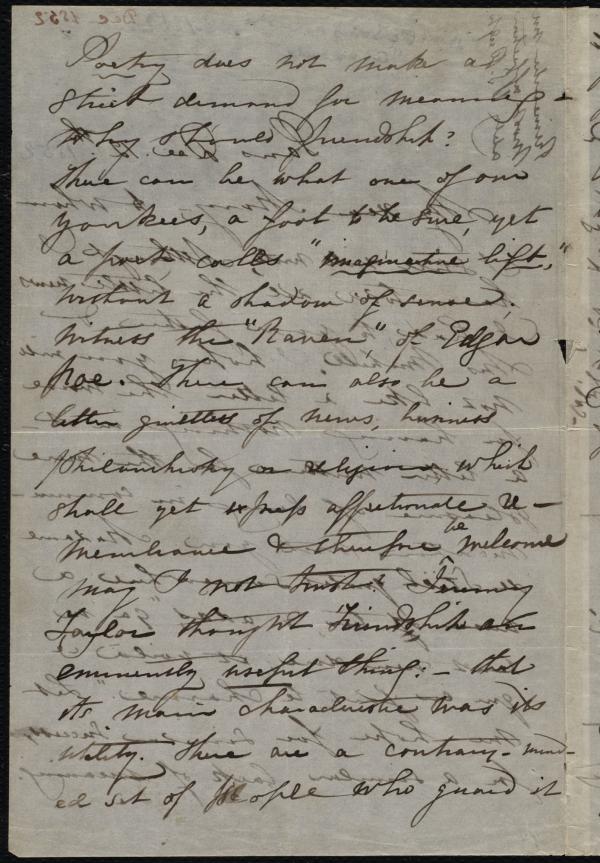 Dec 1852
Poetry does not make a
strict demand for meaning -
Why should Friendship?
There can be what one of our
Yankees, a foot to be sure, yet
a poet calls "imaginative lift,"
without a shadow of sense;
witness the "Raven," of Edgar
Poe. There can also be a
letter guiltless of news, business
philanthropy or religion which
shall yet express affectionate re-
membrance & therefore be welcome
may I not trust? Jeremy
Taylor thought Friendship an
eminently useful thing: - that
its main characteristic was its
utility. There are a contrary-mind-
ed set of people who guard it